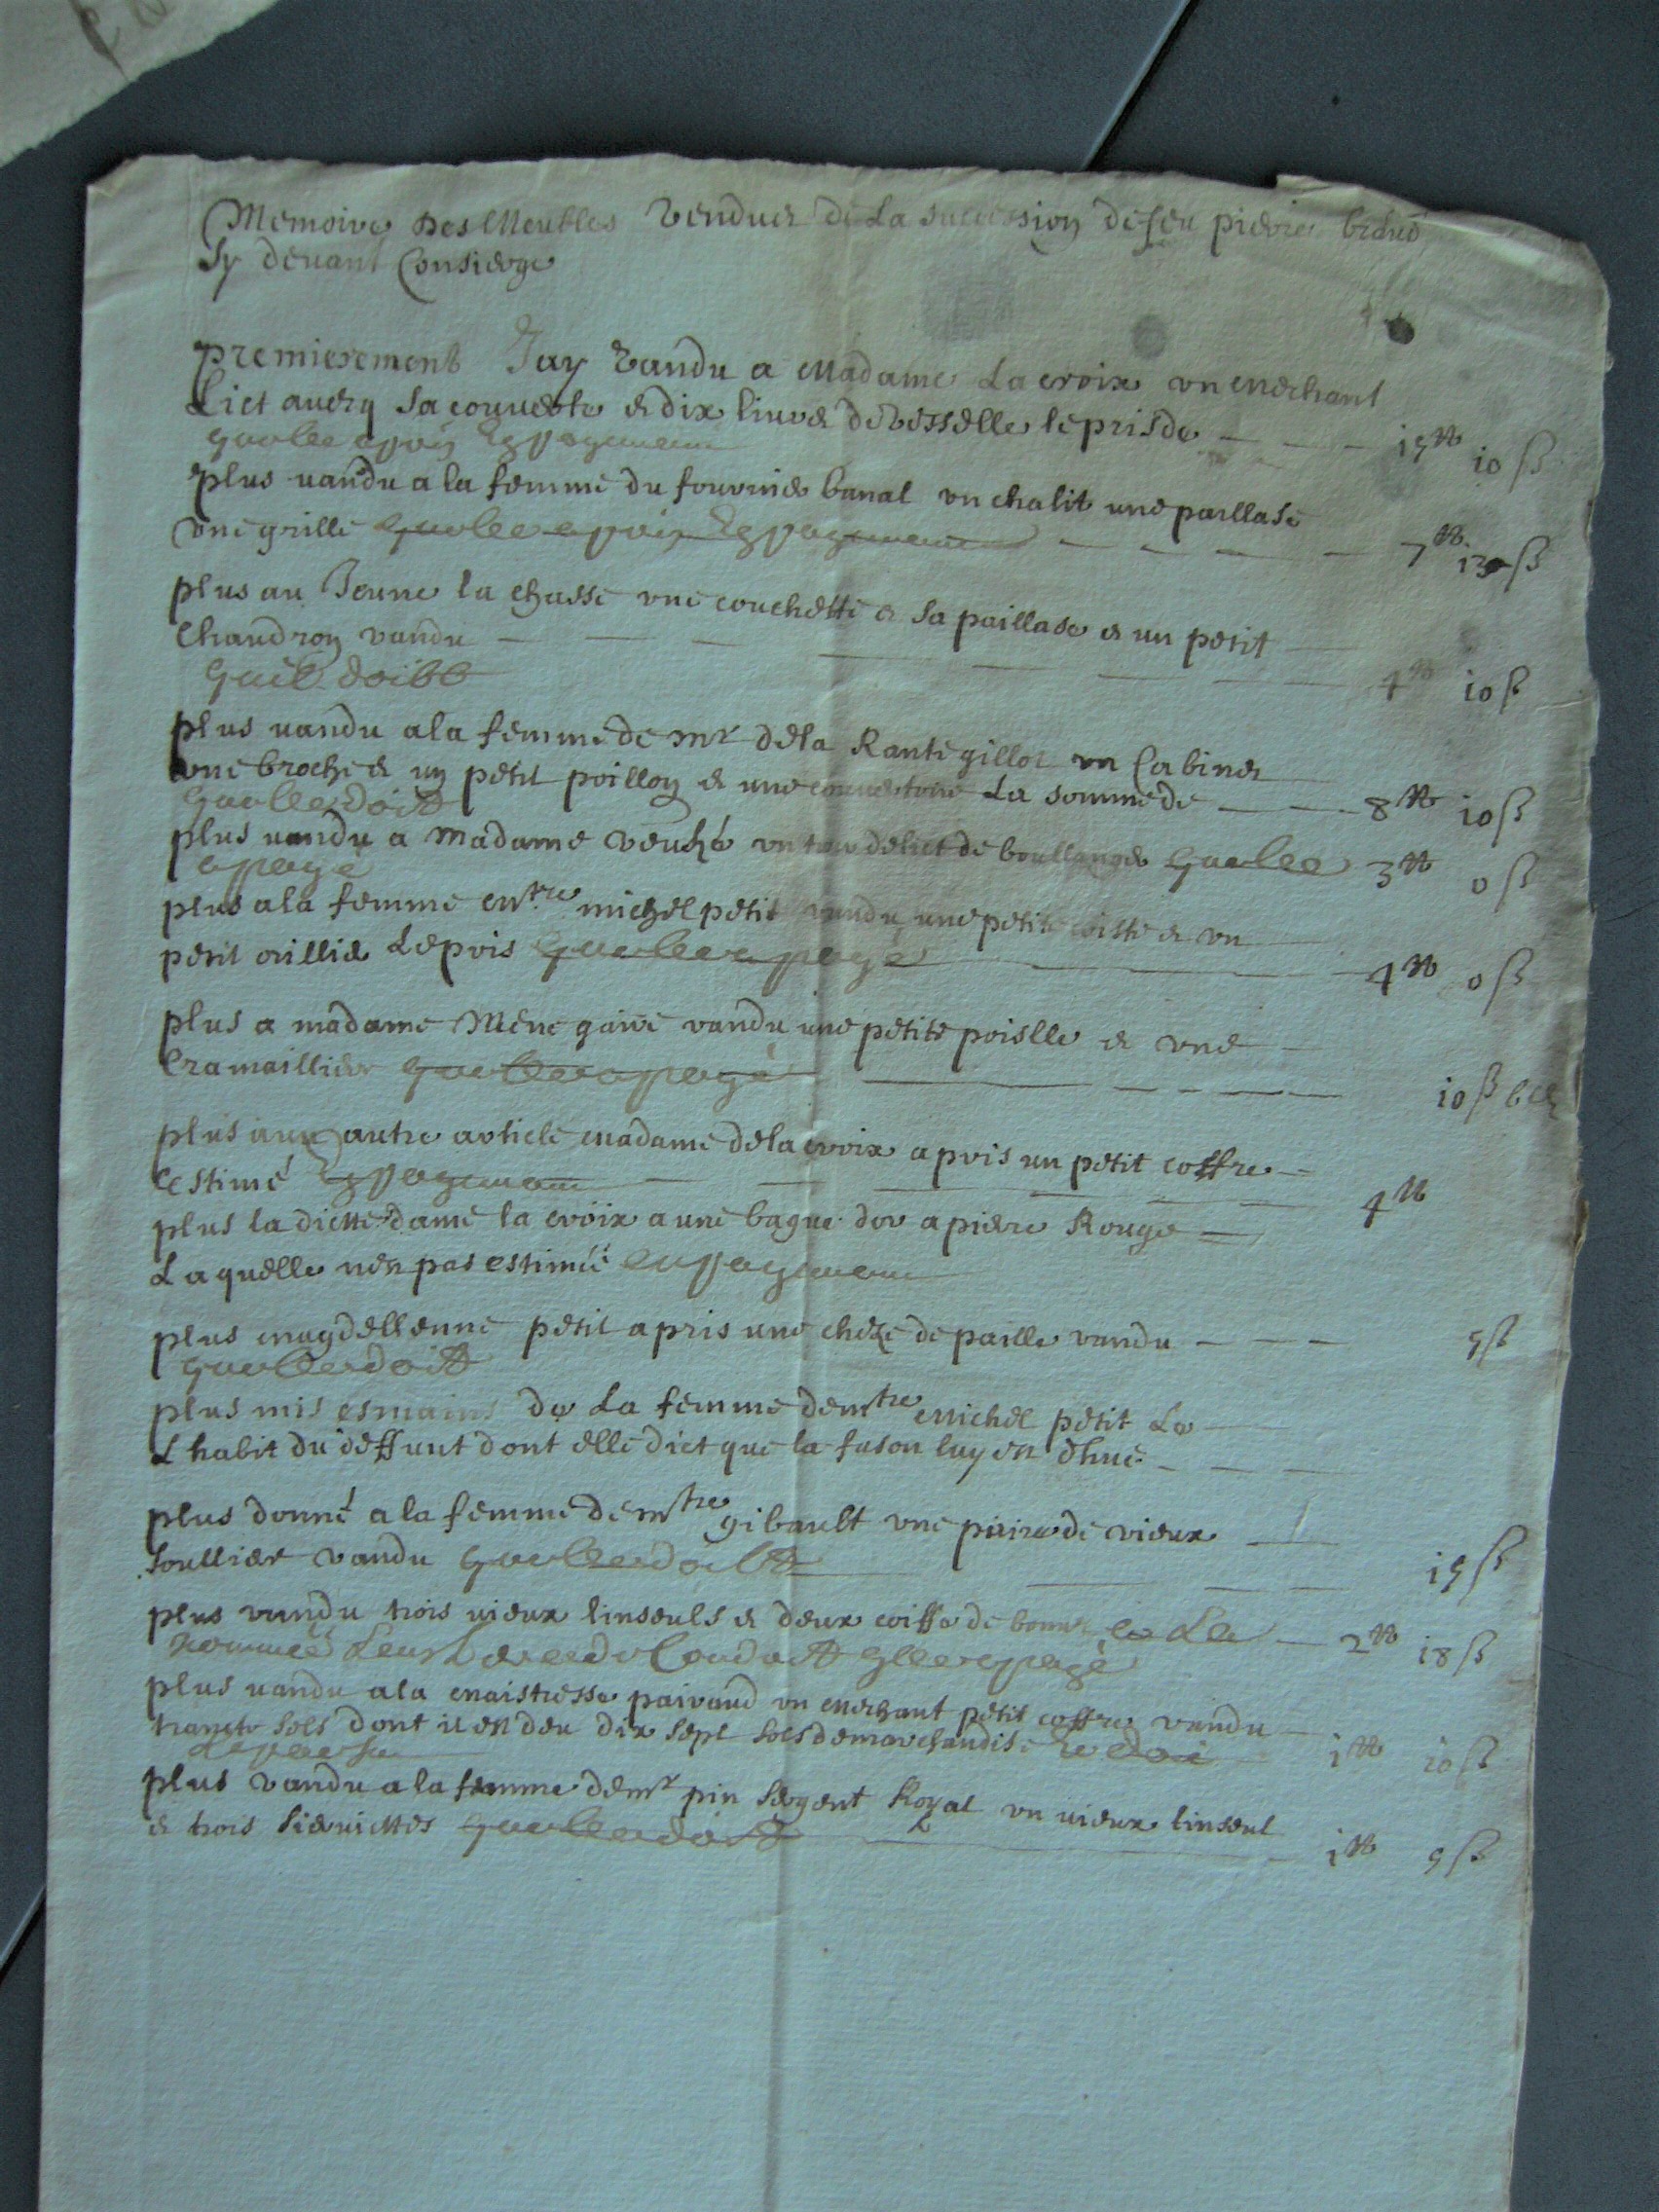 Memoire Des Meubles venduer de La succession de feu pierre
Sy deuant Consierge
premierement Jay vandu a Madame Lacroix vn mechant
Lict auecq sa couuerte et dix liures de vesselle le pris de 15 tt 10 ß
quelle a en payemant
plus vandu a la femme du fournier banal vn chalit une paillase
vne grille quelle a en payemant 7 tt ß
plus au Jeune la chasse vne couchette et sa paillase et un petit
Chaudron vandu 4 tt 10 ß
quil doibt
plus vandu a la femme de mr de la gillot vn Cabinet
vne broche et un petit poillon et une couuertoire La somme de 8 tt 10 ß
quelle doit
plus vandu a madame vn de lict de boullanger quelle 3 tt 0 ß
a payé
plus a la femme de mtre michel petit vandu une petite et vn
petit orillie Le pris quelle a payé 4 tt 0 ß
plus a madame vandu une petite poislle et vne
Cramaillier quelle a payé 10 ß
plus autre article madame de la croix a pris un petit coffre
Estimé En payemant 4 tt
plus la dictte dame la croix a une bague dor a piere Rouge
Laquelle nest pas estimée en payemant
plus magdellenne petit a pris une cheze de paille vandu 5 ß
quelle doit
plus mis es mains de La femme de mtre michel petit Le
Lhabit du deffunt dont elle dict que la fason luy est dhue
plus donné a la femme de mtre gibault vne paire de vieux
soullier vandu quelle doibt 15 ß
plus vandu trois vieux linseuls et deux coiffe de a La 2 tt 18 ß
nommée quelle a payé
plus vandu a la maistresse vn mechant petit coffre vandu
trante sols dont il est deu dix sept sols de marchandise 1 tt 10 ß
plus vandu a la femme de mr pin sergent Royal vn vieux linseul
et trois sieruiettes quelle doit 1 tt 5 ß